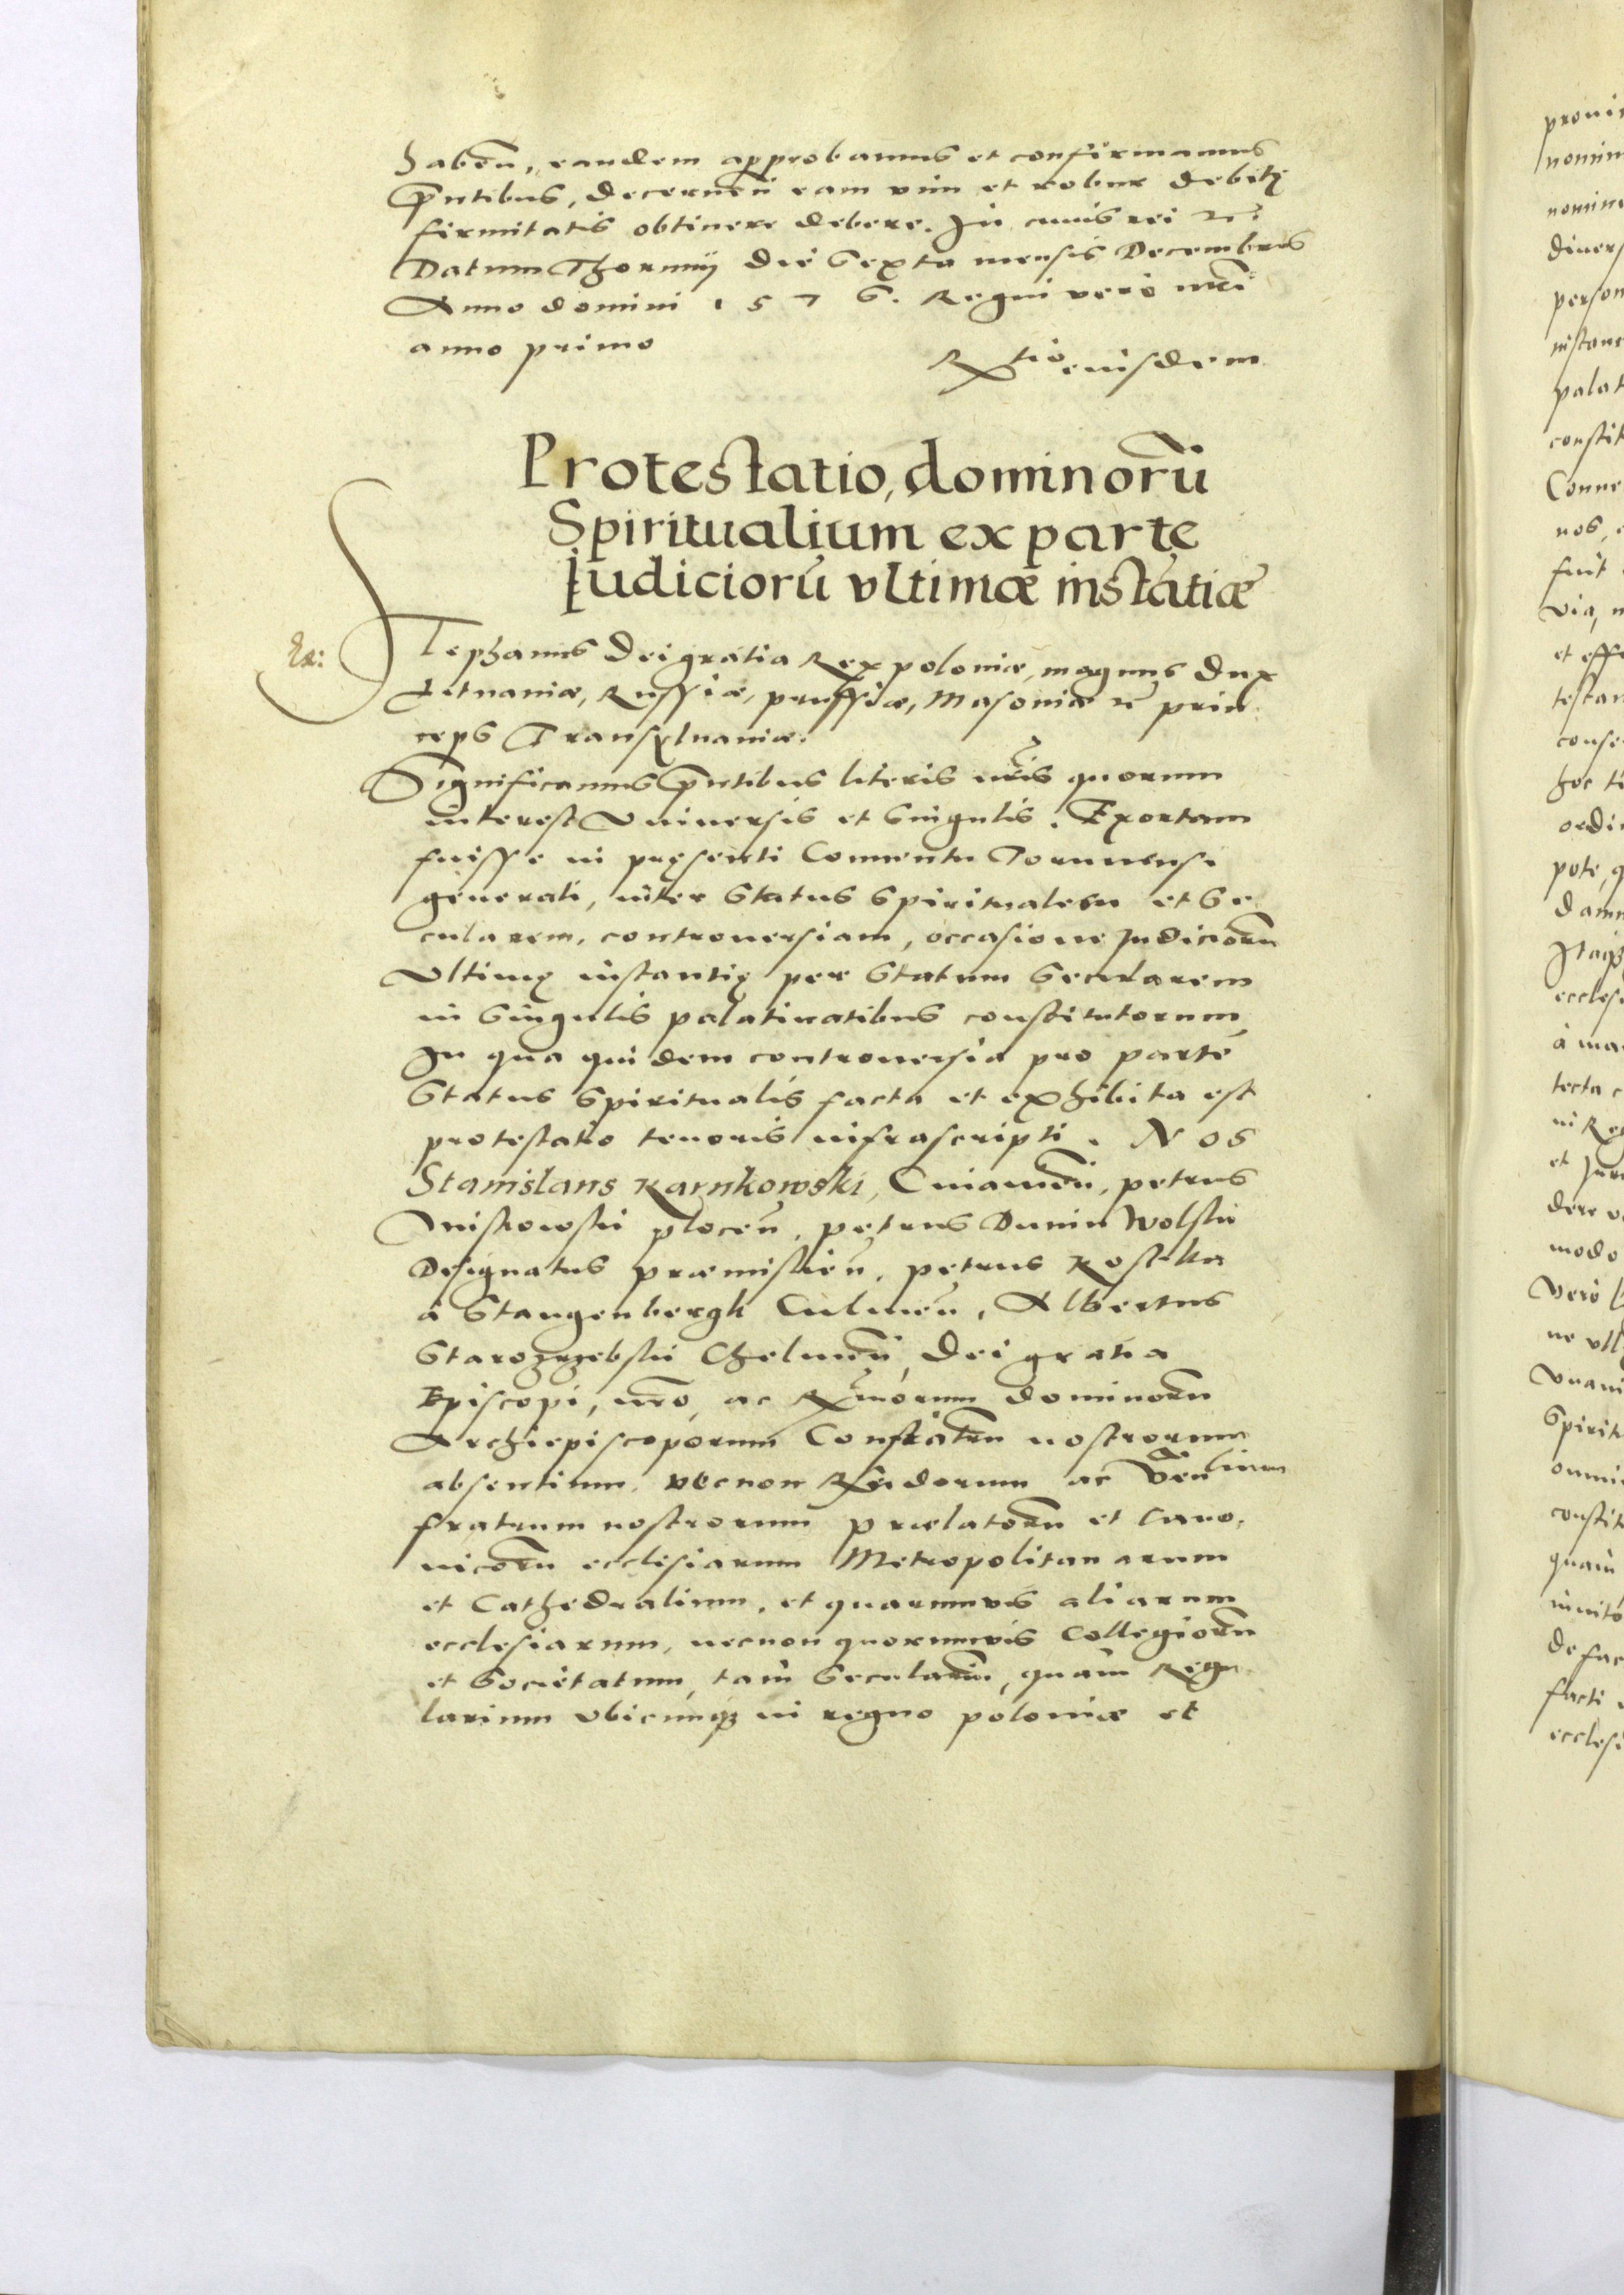 haben̄, eandem approbamus et confirmamus
p̄ntibus, decernen̄ eam vim et robur debitę
firmitatis obtinere debere. In cuius rei etc.
Datum Thorunij die Sexta mensis Decembris
Anno domini 1576. Regni vero nr̄i
anno primo
Rtio eiusdem
Protestatio, dominorū
Spiritualium ex parte
Iudiciorū vltimæ instātiæ
Ex:
Stephanus Dei gratia Rex poloniæ, magnus dux
Lituaniæ, Russiæ, prussiæ, Masoniæ etc prin
ceps Transyluaniæ.
Significamus p̄ntibus literis nr̄is quorum
interest Vniuersis et Singulis. Exortam
fuisse in pręsenti Conuentu Torunensi
generali, inter Status Spiritualem et Se
cularem, controuersiam, occasione Judiciorū
Vltimę instantię per Statum Secularem
in Singulis palatinatibus constitutorum,
In qua quidem controuersia pro parte
Status Spiritualis facta et exhibita est
protestatio tenoris infrascripti. Nos
Stanislaus Karnkowski, Cuiauien̄, petrus
Miskowski plocen̄, petrus Dunin Wolski
Designatus præmislien̄, petrus Kostka
à Stangenbergk Culmen̄, Albertus
Starozrzebski Chelmen̄, Dei gratia
Episcopi, nr̄o, ac Rmorum dominorū
Archiepiscoporum Confratrū nostrorum
absentium, necnon Rn̄dorum ac Ven̄lium
fratrum nostrorum prælatorū et Cano,
nicorū ecclesiarum Metropolitanarum
et Cathedralium, et quarumuis aliarum
ecclesiarum, necnon quorumuis Collegiorū
et Societatum, tam Seculariū, quàm Regu
larium vbicunqȝ in regno poloniæ et